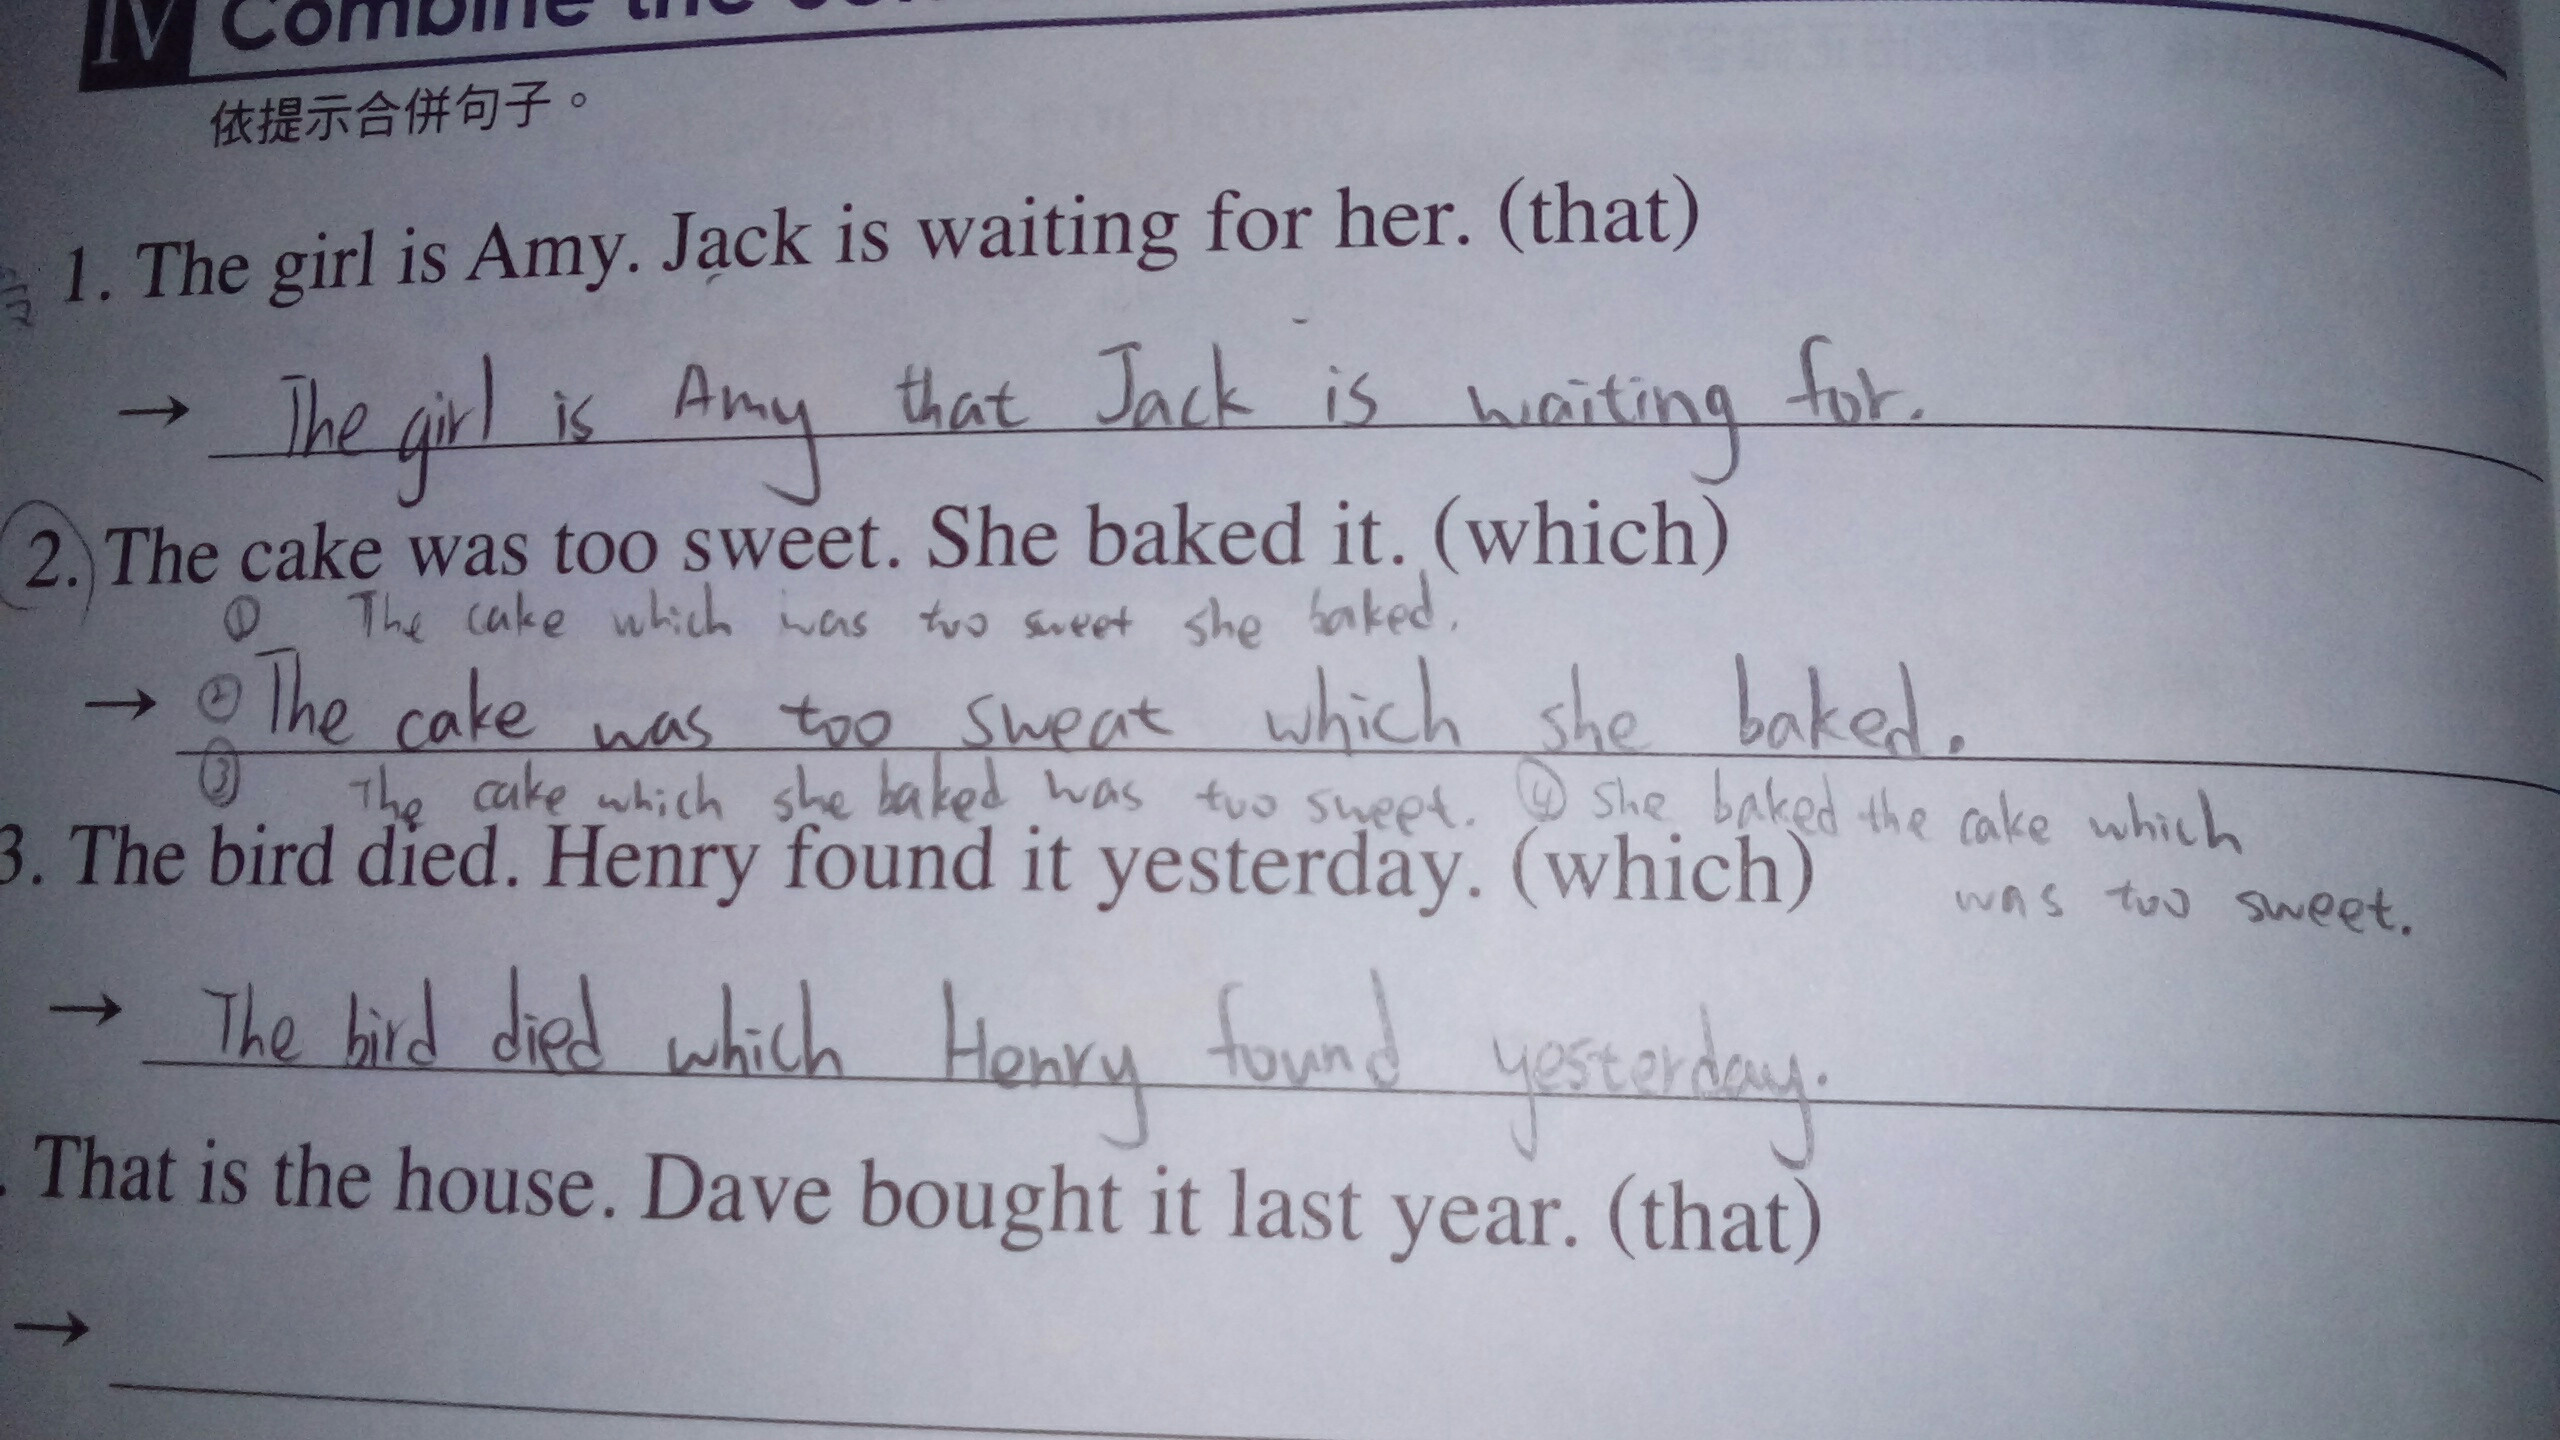 IV Combine the
依提示合併句子。
1. The girl is Amy. Jack is waiting for her. (that)
→ The girl is Amy that Jack is waiting for.
2. The cake was too sweet. She baked it. (which)
① The cake which was too sweet she baked.
→ ② The cake was too sweat which she baked.
③ The cake which she baked was too sweet. ④ she baked the cake which
was too sweet.
3. The bird died. Henry found it yesterday. (which)
→ The bird died which Henry found yesterday.
. That is the house. Dave bought it last year. (that)
→